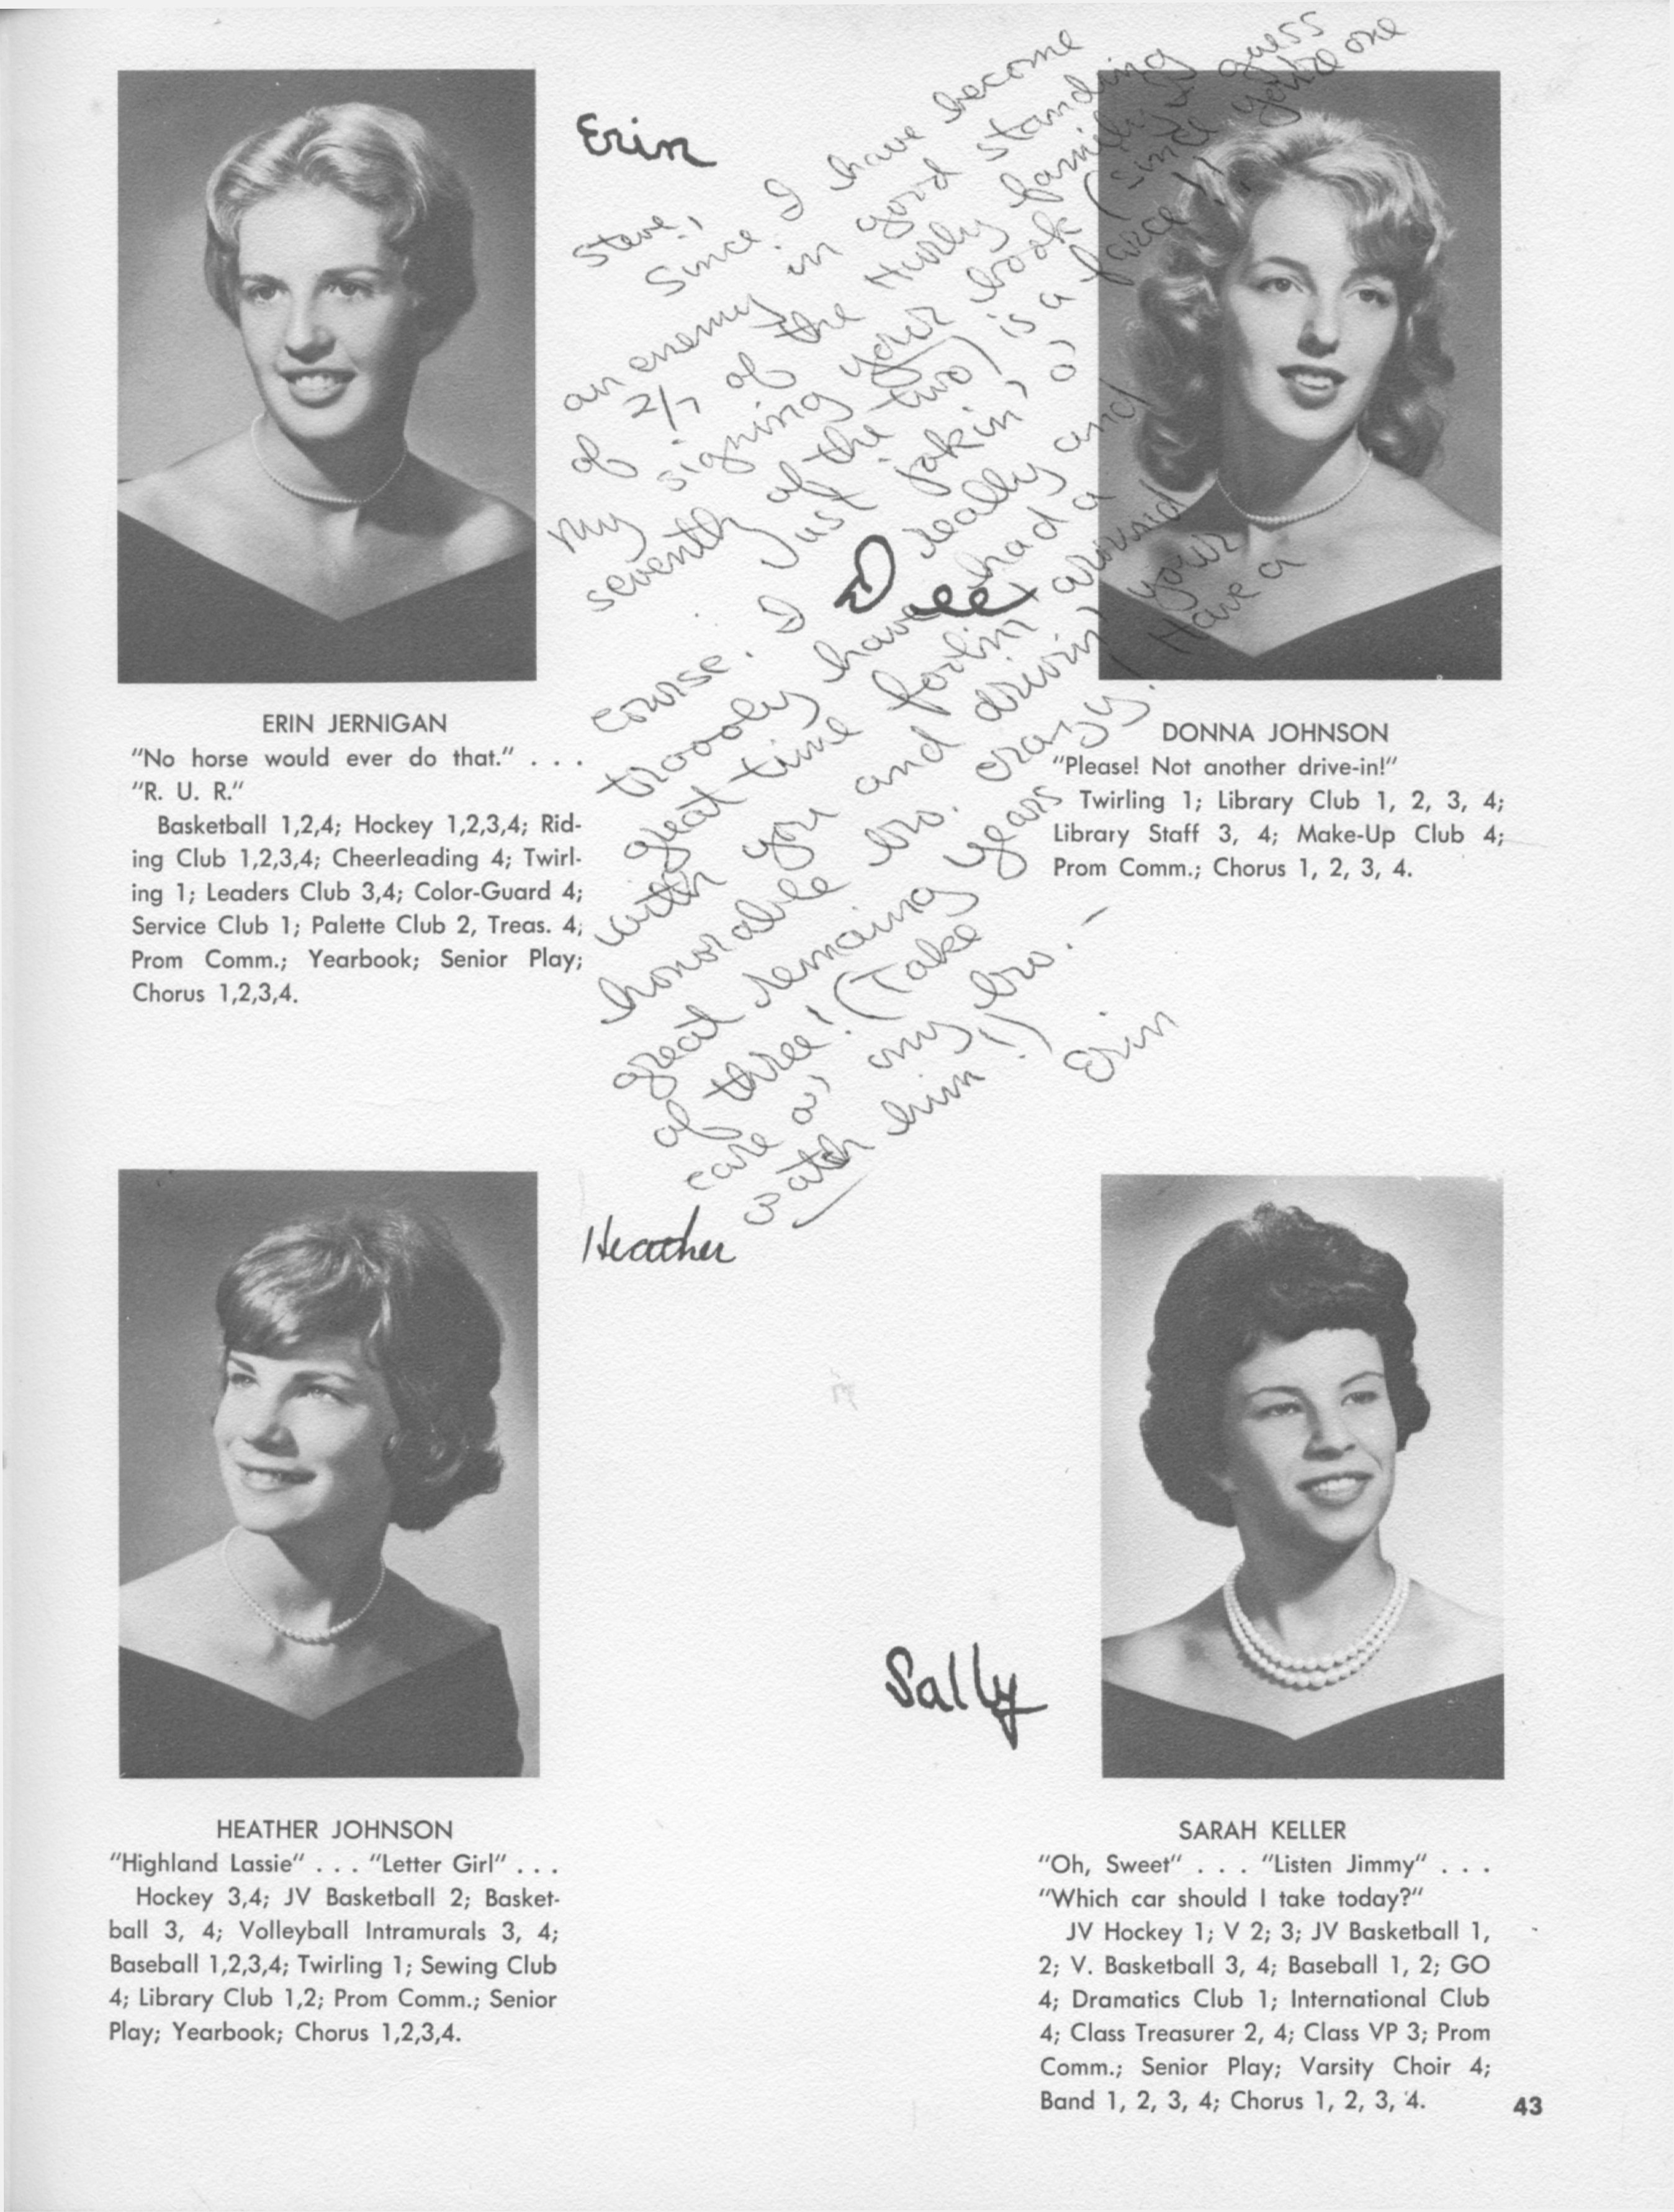 Erin
Steve,
Since I have become
an enemy in good standing
of 2/7 of the Hurly family
my signing your book (since I guess you're one
seventh of the two) is a farce!!
Just jokin, o'
course. I really and
trooooly have had a
great time foolin' around
with you and drivin' your
honorable bro. crazy! Have a
great remaining years
of three! (Take
care o' my bro. –
watch him!)
Erin
Dee
ERIN JERNIGAN
"No horse would ever do that." . . .
"R. U. R."
Basketball 1,2,4; Hockey 1,2,3,4; Rid-
ing Club 1,2,3,4; Cheerleading 4; Twirl-
ing 1; Leaders Club 3,4; Color-Guard 4;
Service Club 1; Palette Club 2, Treas. 4;
Prom Comm.; Yearbook; Senior Play;
Chorus 1,2,3,4.
DONNA JOHNSON
"Please! Not another drive-in!"
Twirling 1; Library Club 1, 2, 3, 4;
Library Staff 3, 4; Make-Up Club 4;
Prom Comm.; Chorus 1, 2, 3, 4.
Heather
Sally
HEATHER JOHNSON
"Highland Lassie" . . . "Letter Girl" . . .
Hockey 3,4; JV Basketball 2; Basket-
ball 3, 4; Volleyball Intramurals 3, 4;
Baseball 1,2,3,4; Twirling 1; Sewing Club
4; Library Club 1,2; Prom Comm.; Senior
Play; Yearbook; Chorus 1,2,3,4.
SARAH KELLER
"Oh, Sweet" . . . "Listen Jimmy" . . .
"Which car should I take today?"
JV Hockey 1; V 2; 3; JV Basketball 1,
2; V. Basketball 3, 4; Baseball 1, 2; GO
4; Dramatics Club 1; International Club
4; Class Treasurer 2, 4; Class VP 3; Prom
Comm.; Senior Play; Varsity Choir 4;
Band 1, 2, 3, 4; Chorus 1, 2, 3, 4.
43